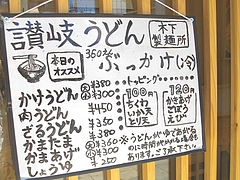 讃岐うどん
木下製麺所
本日のオススメ
360円 ぶっかけ(冷)
かけうどん
肉うどん
ざるうどん
かまたま
かまあげ
しょうゆ
¥380
¥300
¥450
¥350
トッピング
100円
ちくわ
いか天
とり天
120円
かきあげ
ごぼう
えび
※うどんがゆであがるのに時間がかかる場合もあります。ご了承下さい